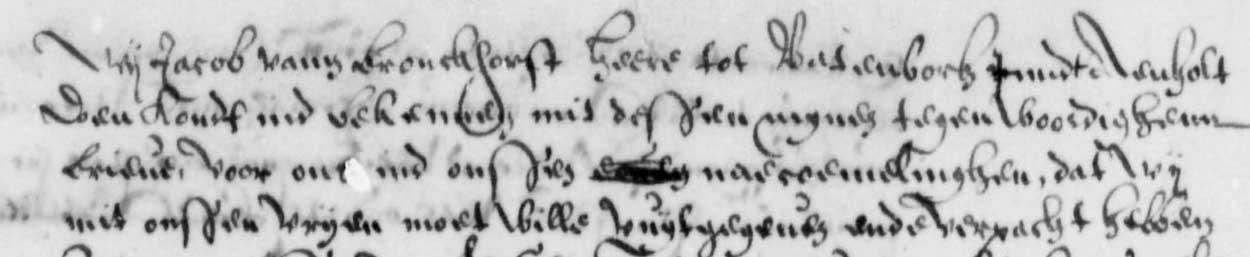 Wij Jacob vann Bronckhorst heere tot Batenborch ynndt Aenholt
doen kondt ind bekennen mit dessen mynen tegenwoordighenn
brieve, voor ons ind onssen naecoemelinghen, dat wij
mit onssen vrijen moetwille vuytgegeven ende verpacht hebben